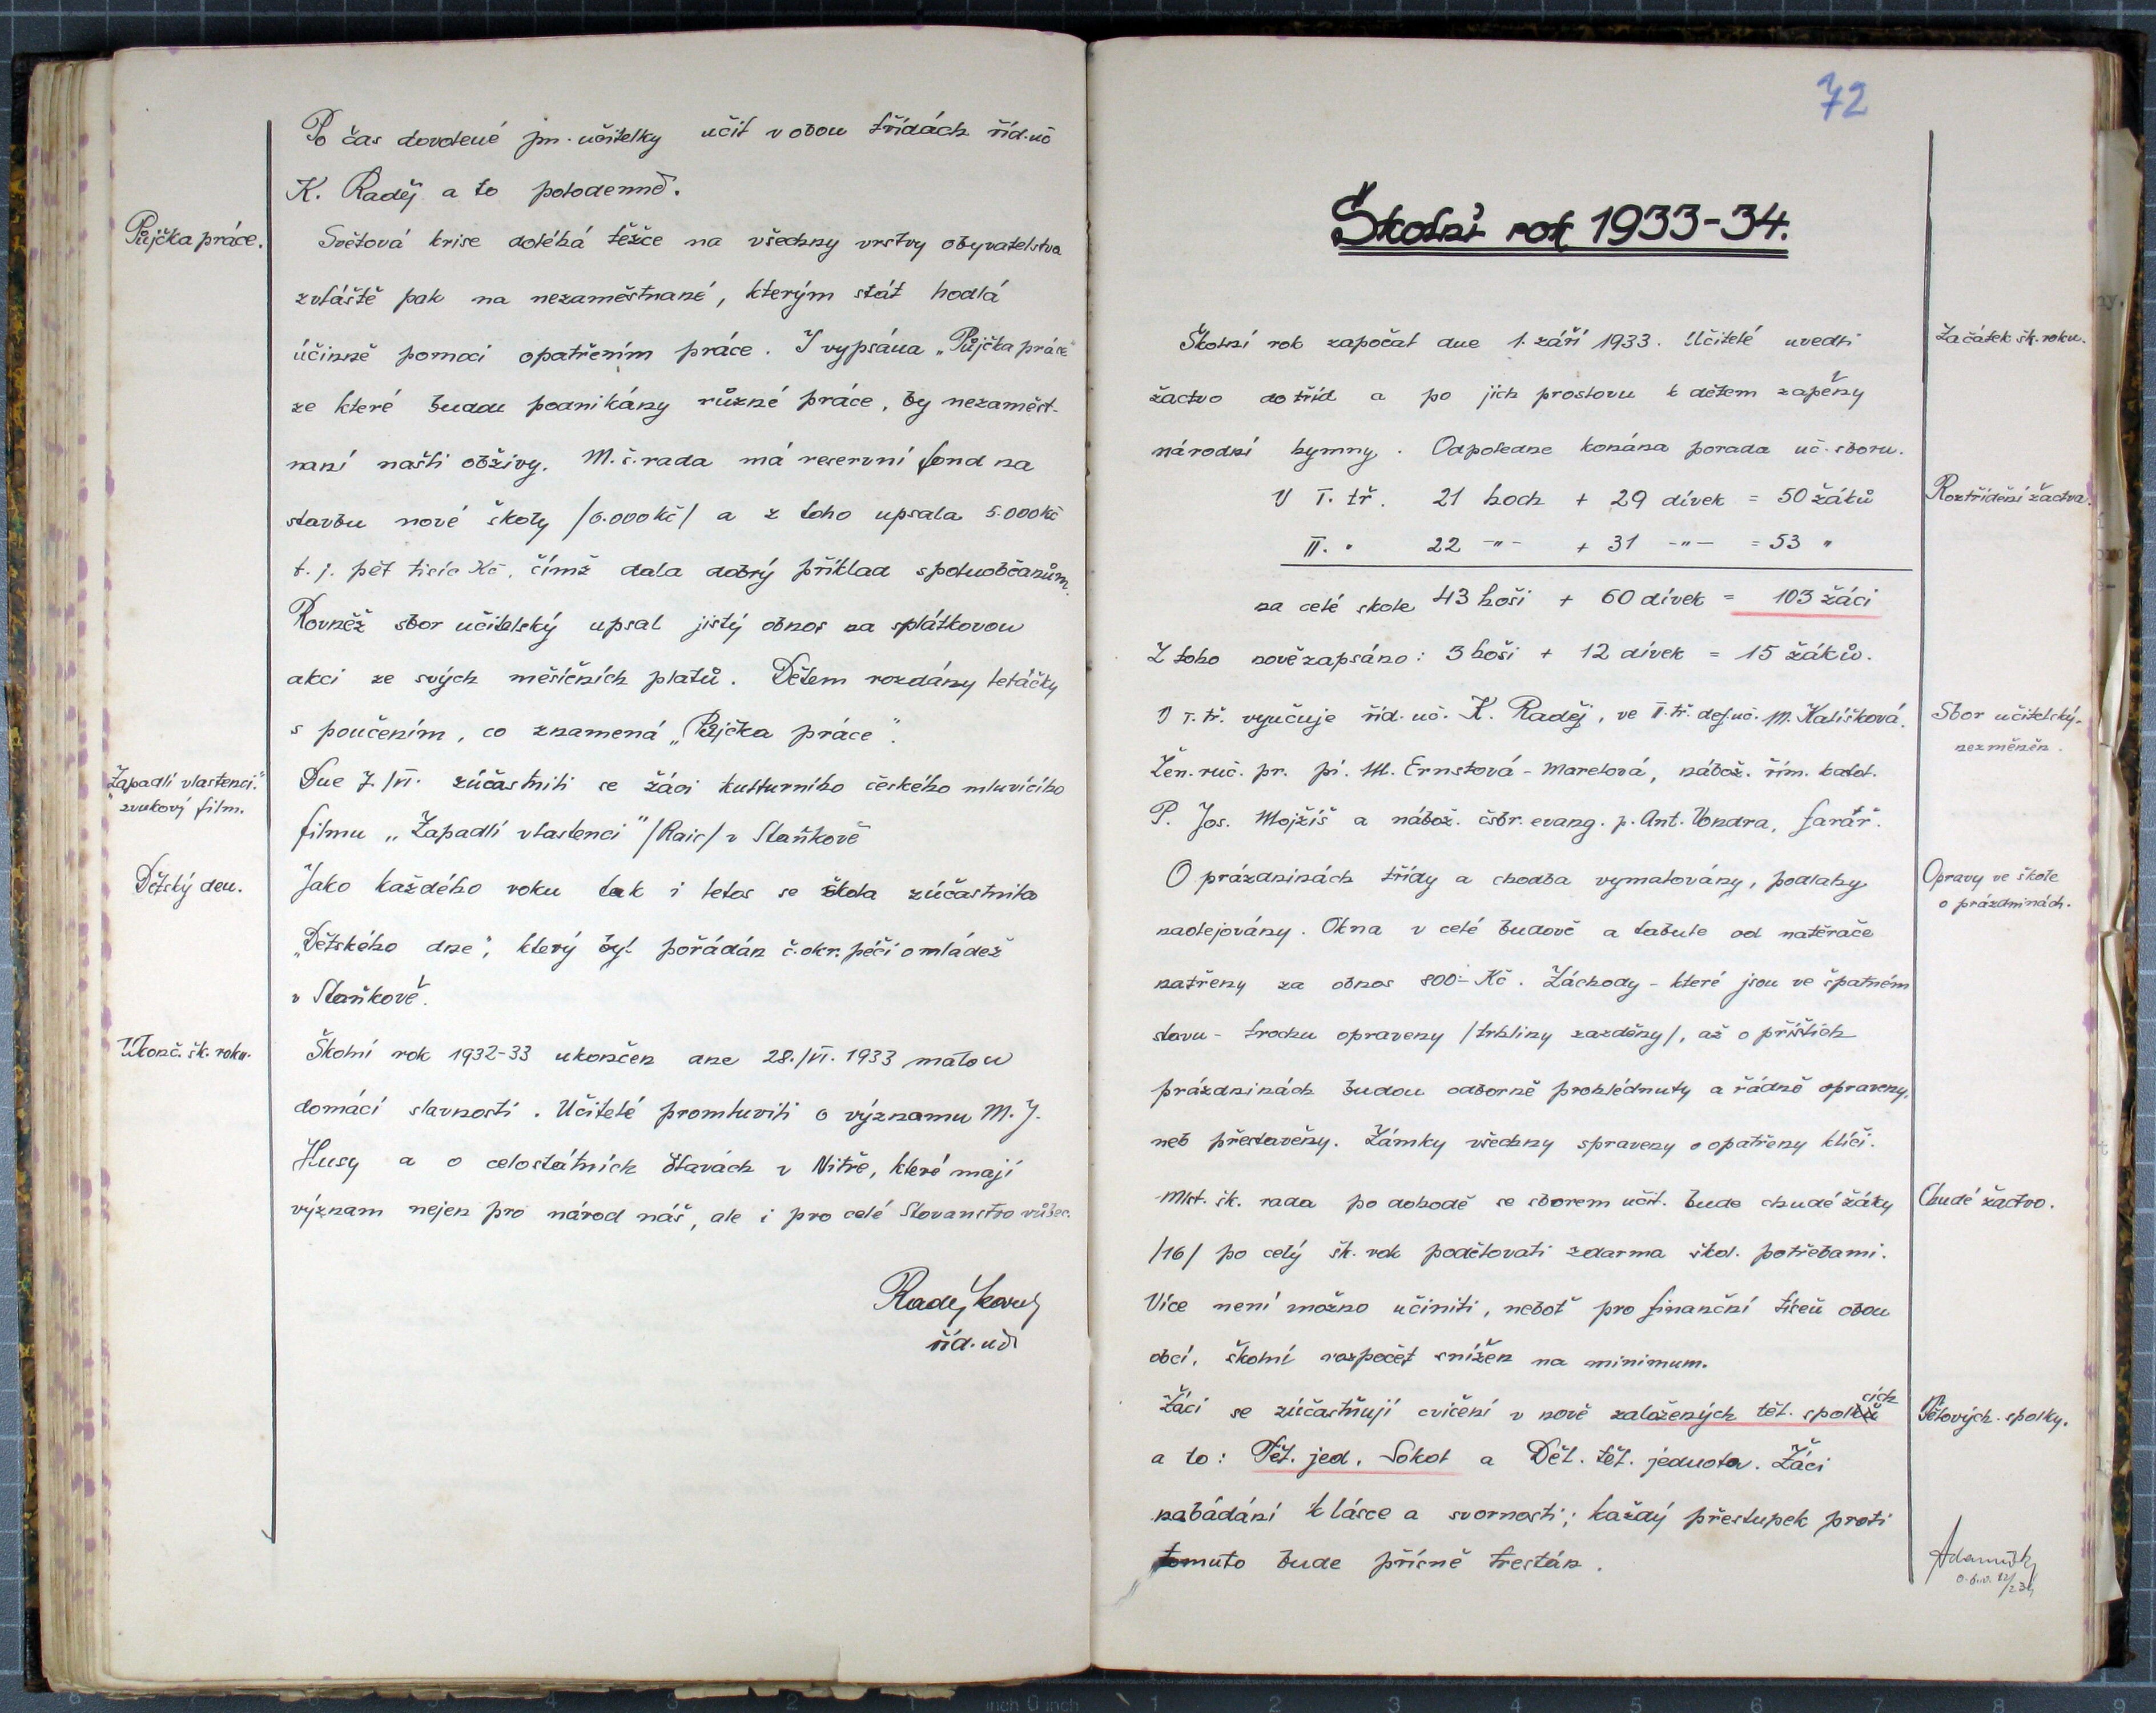 Po čas dovolené pn. učitelky učil v obou třídách říd. uč
K. Raděj a to polodenně.
Půjčka práce.
Světová krise doléhá těžce na všechny vrstvy obyvatelstva
zvláště pak na nezaměstnané, kterým stát hodlá
účinně pomoci opatřením práce. I vypsána „Půjčka práce"
ze které budou podnikány různé práce, by nezaměst-
naní našli obživy. M. š. rada má reservní fond na
stavbu nové školy /6.000 Kč/ a z toho upsala 5.000 Kč
t. j. pět tisíc Kč, čímž dala dobrý příklad spoluobčanům.
Rovněž sbor učitelský upsal jistý obnos na splátkovou
akci ze svých měsíčních platů. Dětem rozdány letáčky
s poučením, co znamená „Půjčka práce".
„Zapadlí vlastenci."
zvukový film.
Dne 7./VI. zúčastnili se žáci kulturního českého mluvícího
filmu „Zapadlí vlastenci" /Rais/ v Staňkově
Dětský den.
Jako každého roku tak i letos se škola zúčastnila
„Dětského dne", který byl pořádán č. okr. péčí o mládež
v Staňkově.
Ukonč. šk. roku.
Školní rok 1932-33 ukončen dne 28./VI. 1933 malou
domácí slavností. Učitelé promluvili o významu M. J.
Husy a o celostátních slavách v Nitře, které mají
význam nejen pro národ náš, ale i pro celé Slovanstvo vůbec.
Raděj Karel
říd. uč
72
Školní rok 1933-34.
Školní rok započal dne 1. září 1933. Učitelé uvedli
Začátek šk. roku.
žactvo do tříd a po jich proslovu k dětem zapěny
národní hymny. Odpoledne konána porada uč. sboru.
V I. tř. 21 hoch + 29 dívek = 50 žáků
Roztřídění žactva.
II. " 22 -"- + 31 -"- = 53 "
na celé skole 43 hoši + 60 dívek = 103 žáci
Z toho nově zapsáno: 3 hoši + 12 dívek = 15 žáků.
V I. tř. vyučuje říd. uč. K. Raděj, ve II. tř. def. uč. M. Kalíšková.
Sbor učitelský-
nezměněn.
Žen. ruč. pr. pí. M. Ernstová-Marelová, nábož. řím. katol.
P. Jos. Mojžíš a nábož. čsbr. evang. p. Ant. Vondra, farář.
O prázdninách třídy a chodba vymalovány, podlahy
Opravy ve škole
o prázdninách.
naolejovány. Okna v celé budově a tabule od natěrače
natřeny za obnos 800.- Kč. Záchody - které jsou ve špatném
stavu - trochu opraveny /trhliny zazděny/, až o příštích
prázdninách budou odborně prohlédnuty a řádně opraveny,
neb přestavěny. Zámky všechny spraveny a opatřeny klíči.
Míst. šk. rada po dohodě se sborem učit. bude chudé žáky
Chudé žactvo.
/16/ po celý šk. rok podělovati zdarma škol. potřebami.
Více není možno učiniti, neboť pro finanční tíseň obou
obcí, školní rozpočet snížen na minimum.
Žáci se zúčastňují cvičení v nově založených těl. spolcích
Tělových. spolky.
a to: Těl. jed. Sokol a Děl. těl. jednota. Žáci
nabádáni k lásce a svornosti; každý přestupek proti
tomuto bude přísně trestán.